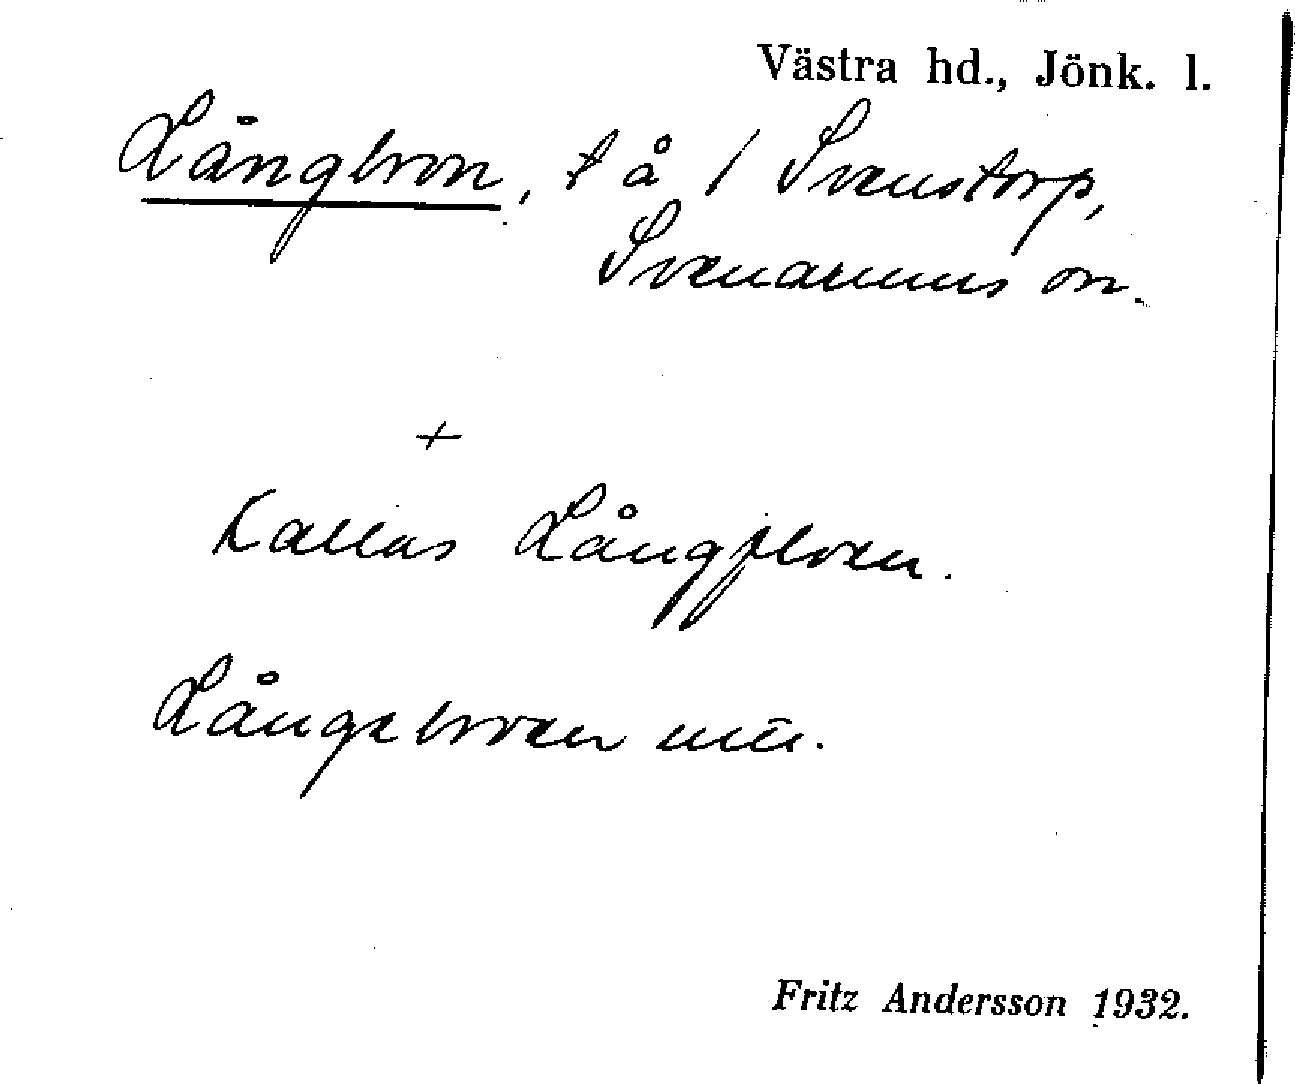 Västra hd., Jönk. l.
Långbron, t å / Svenstorp,
Svenarums sn.
+
Kallas Långfloen.
Långebroen
Fritz Andersson 1932.